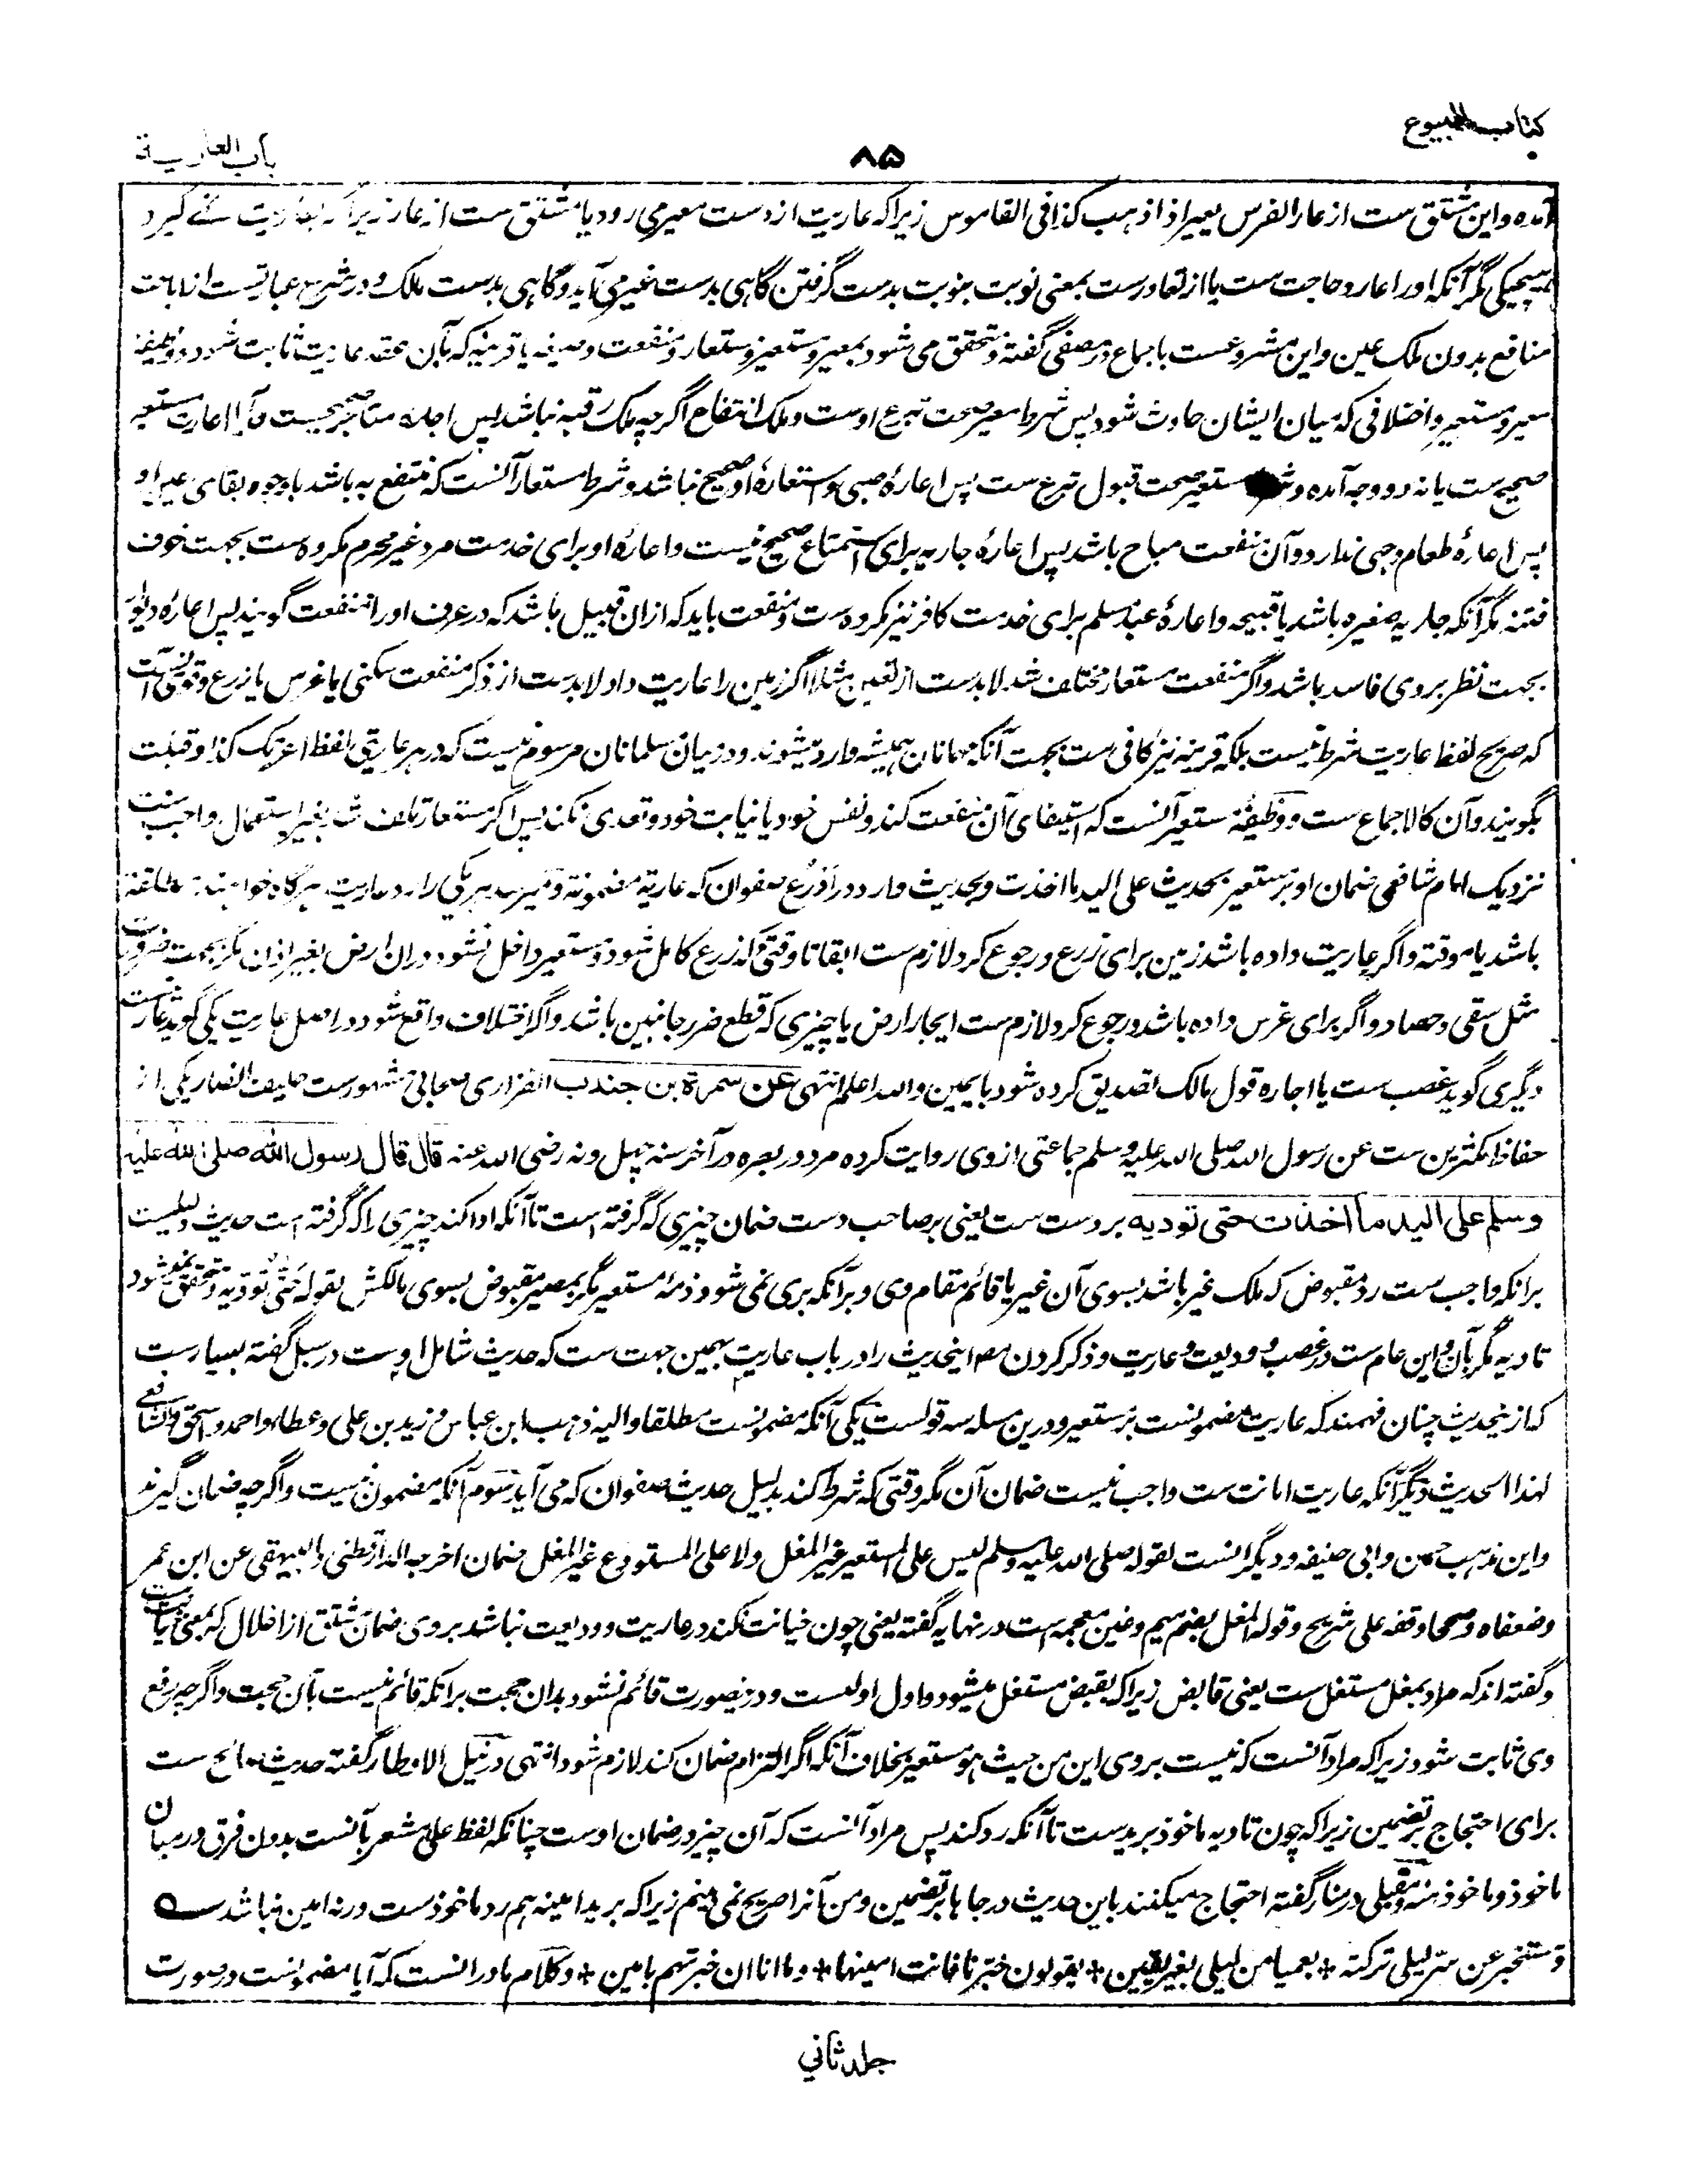 کتاب البیوع
۸۵
باب العاریة
آمده و این مشتق ست از عار الفرس یعیر اذا ذهب کذا فی القاموس زیراکه عاریت از دست معیر می رود یا مشتق ست از عار زیراکه بعاریت نمی گیرد
هیچکی مگر آنکه او را عار و حاجت ست یا از تعاور ست بمعنی نوبت بنوبت بدست گرفتن گاهی بدست غیر می آید و گاهی بدست مالک و در شرع عبارتست از اباحت
منافع بدون ملک عین و این مشروعست باجماع در مصفی گفته و متحقق می شود بمعیر و مستعیر و مستعار و منفعت و صیغه یا قرینه که بآن عقد عاریت ثابت شود و وظیفه
معیر و مستعیر و اختلافی که میان ایشان حادث شود پس شرط معیر صحت تبرع اوست و ملک انتفاع اگرچه ملک رقبه نباشد پس اجاره مستاجر صحیحست و آیا اعارت مستعیر
صحیح ست یا نه دو وجه آمده و شرط مستعیر صحت قبول تبرع ست پس اعارهٔ صبی و استعارهٔ او صحیح نباشد و شرط مستعار آنست که منتفع به باشد باوجود بقای عین او
پس اعارهٔ طعام وجهی ندارد و آن منفعت مباح باشد پس اعارهٔ جاریه برای استمتاع صحیح نیست و اعارهٔ او برای خدمت مرد غیر محرم مکروه ست بجهت خوف
فتنه مگر آنکه جاریه صغیره باشد یا قبیحه و اعارهٔ عبد مسلم برای خدمت کافر نیز مکروه ست و منفعت باید که ازان قبیل باشد که در عرف او را منفعت گویند پس اعارهٔ دیوار
بجهت نظر بروی فاسد باشد و اگر منفعت مستعار مختلف شد لابدست از تعیین مثلا اگر زمین را عاریت داد لابدست از ذکر منفعت سکنی یا غرس یا زرع و قوی آنست
که صریح لفظ عاریت شرط نیست بلکه قرینه نیز کافی ست بجهت آنکه مهمانان همیشه وارد میشوند و در میان مسلمانان مرسوم نیست که در هر عاریتی لفظ اعرتک کذا و قبلت
بگویند و آن کالاجماع ست و وظیفهٔ مستعیر آنست که استیفای آن منفعت کند بنفس خود یا نیابت خود و تعدی نکند پس اگر مستعار تلف شد بغیر استعمال واجب ست
نزدیک امام شافعی ضمان او بر مستعیر بحدیث علی الید ما اخذت و بحدیث وارد در ادرع صفوان که عاریة مضمونة و میرسد هر یکی را رد عاریت هرگاه خواهند مطلقه
باشد یا موقته و اگر عاریت داده باشد زمین برای زرع و رجوع کرد لازم ست ابقا تا وقتی که زرع کامل شود و مستعیر داخل نشود دران ارض بغیر اذن مگر بجهت ضرورت
مثل سقی و حصاد و اگر برای غرس داده باشد و رجوع کرد لازم ست ایجار ارض یا چیزی که قطع ضرر جانبین باشد و اگر اختلاف واقع شود در اصل عاریت یکی گوید عاریت ست
دیگری گوید غصب ست یا اجاره قول مالک تصدیق کرده شود بایمین والله اعلم انتهی عن سمرة بن جندب الفزاری صحابی مشهورست حلیف انصار یکی از
حفاظ مکثرین ست عن رسول الله صلی الله علیه وسلم جماعتی از وی روایت کرده مرد در بصره در آخر سنه چهل و نه رضی الله عنه قال قال رسول الله صلی الله علیه
وسلم علی الید ما اخذت حتی تودیه بر دست ست یعنی بر صاحب دست ضمان چیزی که گرفته است تا آنکه ادا کند چیزی را که گرفته است حدیث دلیلست
برانکه واجب ست رد مقبوض که ملک غیر باشد بسوی آن غیر یا قائم مقام وی و برآنکه بری نمی شود ذمهٔ مستعیر مگر بمصیر مقبوض بسوی مالکش لقوله حتی تودیه و متحقق نمیشود
تادیه مگر بآن و این عام ست در غصب و ودیعت و عاریت و ذکر کردن مصـ اینحدیث را در باب عاریت بهمین جهت ست که حدیث شامل اوست در سبل گفته بسیارست
که ازینحدیث چنان فهمند که عاریت مضمونست بر مستعیر و درین مسله سه قولست یکی آنکه مضمونست مطلقا و الیه ذهب ابن عباس و زید بن علی و عطاء و احمد و اسحق و الشافعی
لهذا الحدیث دیگر آنکه عاریت امانت ست واجب نیست ضمان آن مگر وقتی که شرط کند بدلیل حدیث صفوان که می آید سوم آنکه مضمون نیست و اگرچه ضمان گیرند
و این مذهب حسن و ابی حنیفه و دیگرانست لقوله صلی الله علیه وسلم لیس علی المستعیر غیر المغل ولا علی المستودع غیر المغل ضمان اخرجه الدارقطنی والبیهقی عن ابن عمر
وضعفاه وصححا وقفه علی شریح و قوله المغل بضم میم و غین معجمه است در نهایه گفته یعنی چون خیانت نکند در عاریت و ودیعت نباشد بروی ضمان مشتق از اغلال که بمعنی خیانت ست
و گفته اند که مراد بمغل مستغل ست یعنی قابض زیراکه بقبض مستغل میشود و اول اولیست و درینصورت قائم نشود بدان حجت برانکه قائم نیست بآن حجت و اگرچه رفع
وی ثابت شود زیراکه مراد آنست که نیست بروی این من حیث هو مستعیر بخلاف آنکه اگر التزام ضمان کند لازم شود انتهی در نیل الاوطار گفته حدیث صالح ست
برای احتجاج بر تضمین زیراکه چون تادیه ماخوذ بر ید ست تا آنکه رد کند پس مراد آنست که آن چیز در ضمان اوست چنانکه لفظ علی مشعر بآنست بدون فرق در میان
ماخوذ و ماخوذ منه و مقبلی در منار گفته احتجاج میکنند باین حدیث در جاها بر تضمین و من آنرا صریح نمی بینم زیراکه بر ید امینه هم رد ماخوذست ورنه امین نباشد سه
ومستخبر عن سر لیلی ترکته * بعمیاء من لیلی بغیر یقین * یقولون خبرنا فانت امینها * وما انا ان خبرتهم بامین * و کلام ما در انست که آیا مضمونست در صورت
جلد ثانی